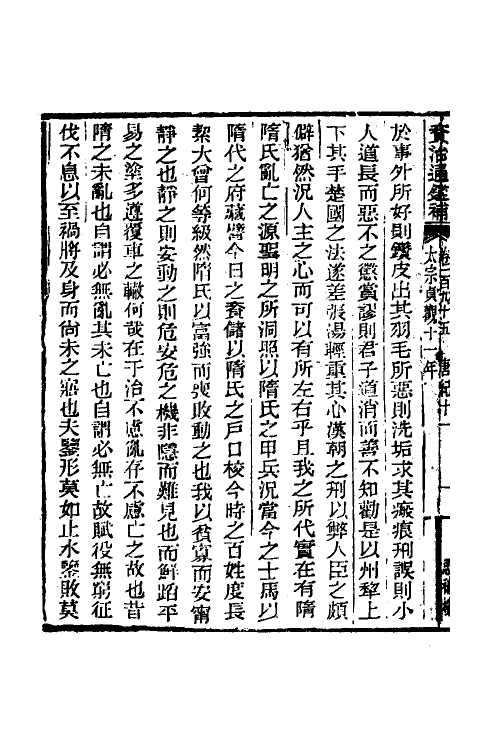 資治通鑑補 卷一百九十五 唐紀十一
太宗貞觀十一年
於事外所好則鑽皮出其羽毛所惡則洗垢求其瘢痕刑誤則小
人道長而惡不之懲賞謬則君子道消而善不知勸是以州犂上
下其手楚國之法遂差張湯輕重其心漢朝之刑以弊人臣之頗
僻猶然況人主之心而可以有所左右乎且我之所代實在有隋
隋氏亂亡之源聖明之所洞照以隋氏之甲兵況當今之士馬以
隋代之府藏譬今日之資儲以隋氏之戶口校今時之百姓度長
絜大曾何等級然隋氏以富強而喪敗動之也我以貧寡而安甯
靜之也靜之則安動之則危安危之機非隱而難見也而鮮蹈平
易之塗多遵覆車之轍何哉在于治不慮亂存不慮亡之故也昔
隋之未亂也自謂必無亂其未亡也自謂必無亡故賦役無窮征
伐不息以至禍將及身而尚未之寤也夫鑒形莫如止水鑒敗莫